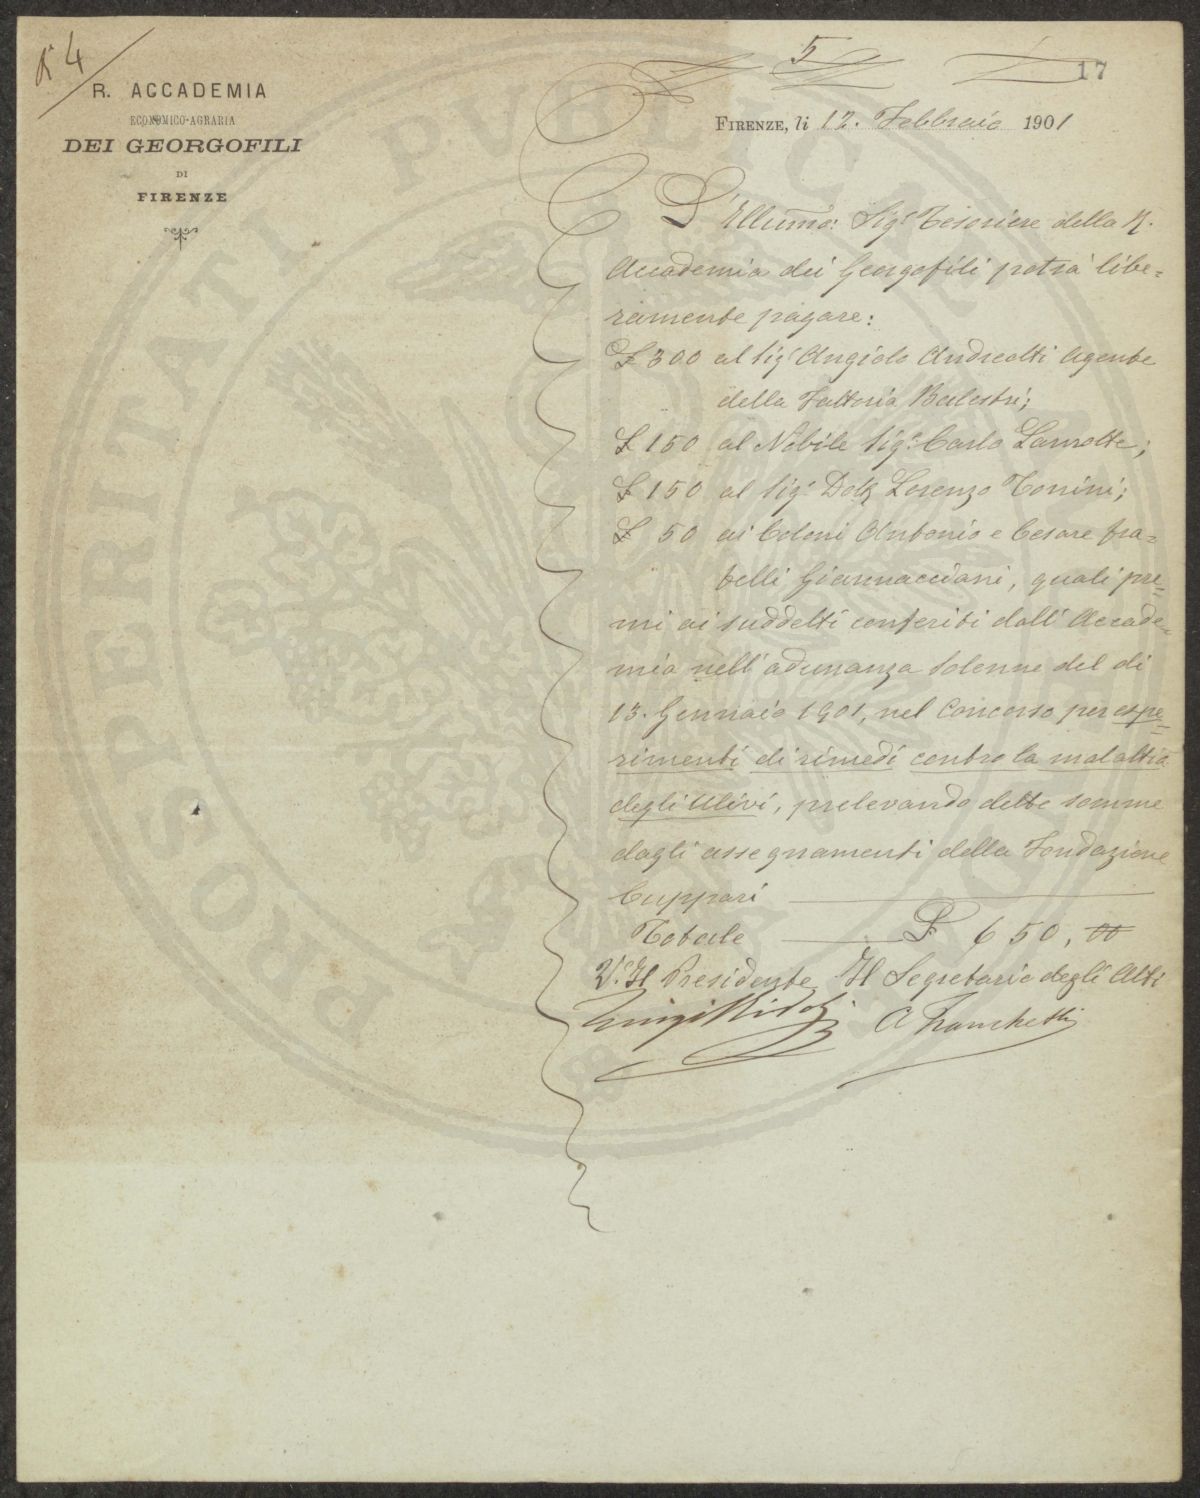 N 4
5
17
R. ACCADEMIA
ECONOMICO-AGRARIA
DEI GEORGOFILI
DI
FIRENZE
FIRENZE, li 12. Febbraio 1901
L'Illumo: Sigr Tesoriere della R.
Accademia dei Georgofili potrà libe=
ramente pagare:
£ 300 al Sigr Angiolo Andreotti Agente
della Fattoria Balestri;
£ 150 al Nobile Sigr Carlo Lamotte;
£ 150 al Sigr Dott Lorenzo Tonini;
£ 50 ai Coloni Antonio e Cesare fra=
telli Giannaccani, quali pre=
mi ai suddetti conferiti dall'Accade=
mia nell'adunanza solenne del dì
13. Gennaio 1901, nel Concorso per espe=
rimenti di rimedi contro la malattia
degli Ulivi, prelevando dette somme
dagli assegnamenti della Fondazione
Cuppari
Totale £ 650,00
V. Il Presidente Il Segretario degli Atti
Luigi Ridolfi A Franchetti
PROSPERITATI PVBLICAE